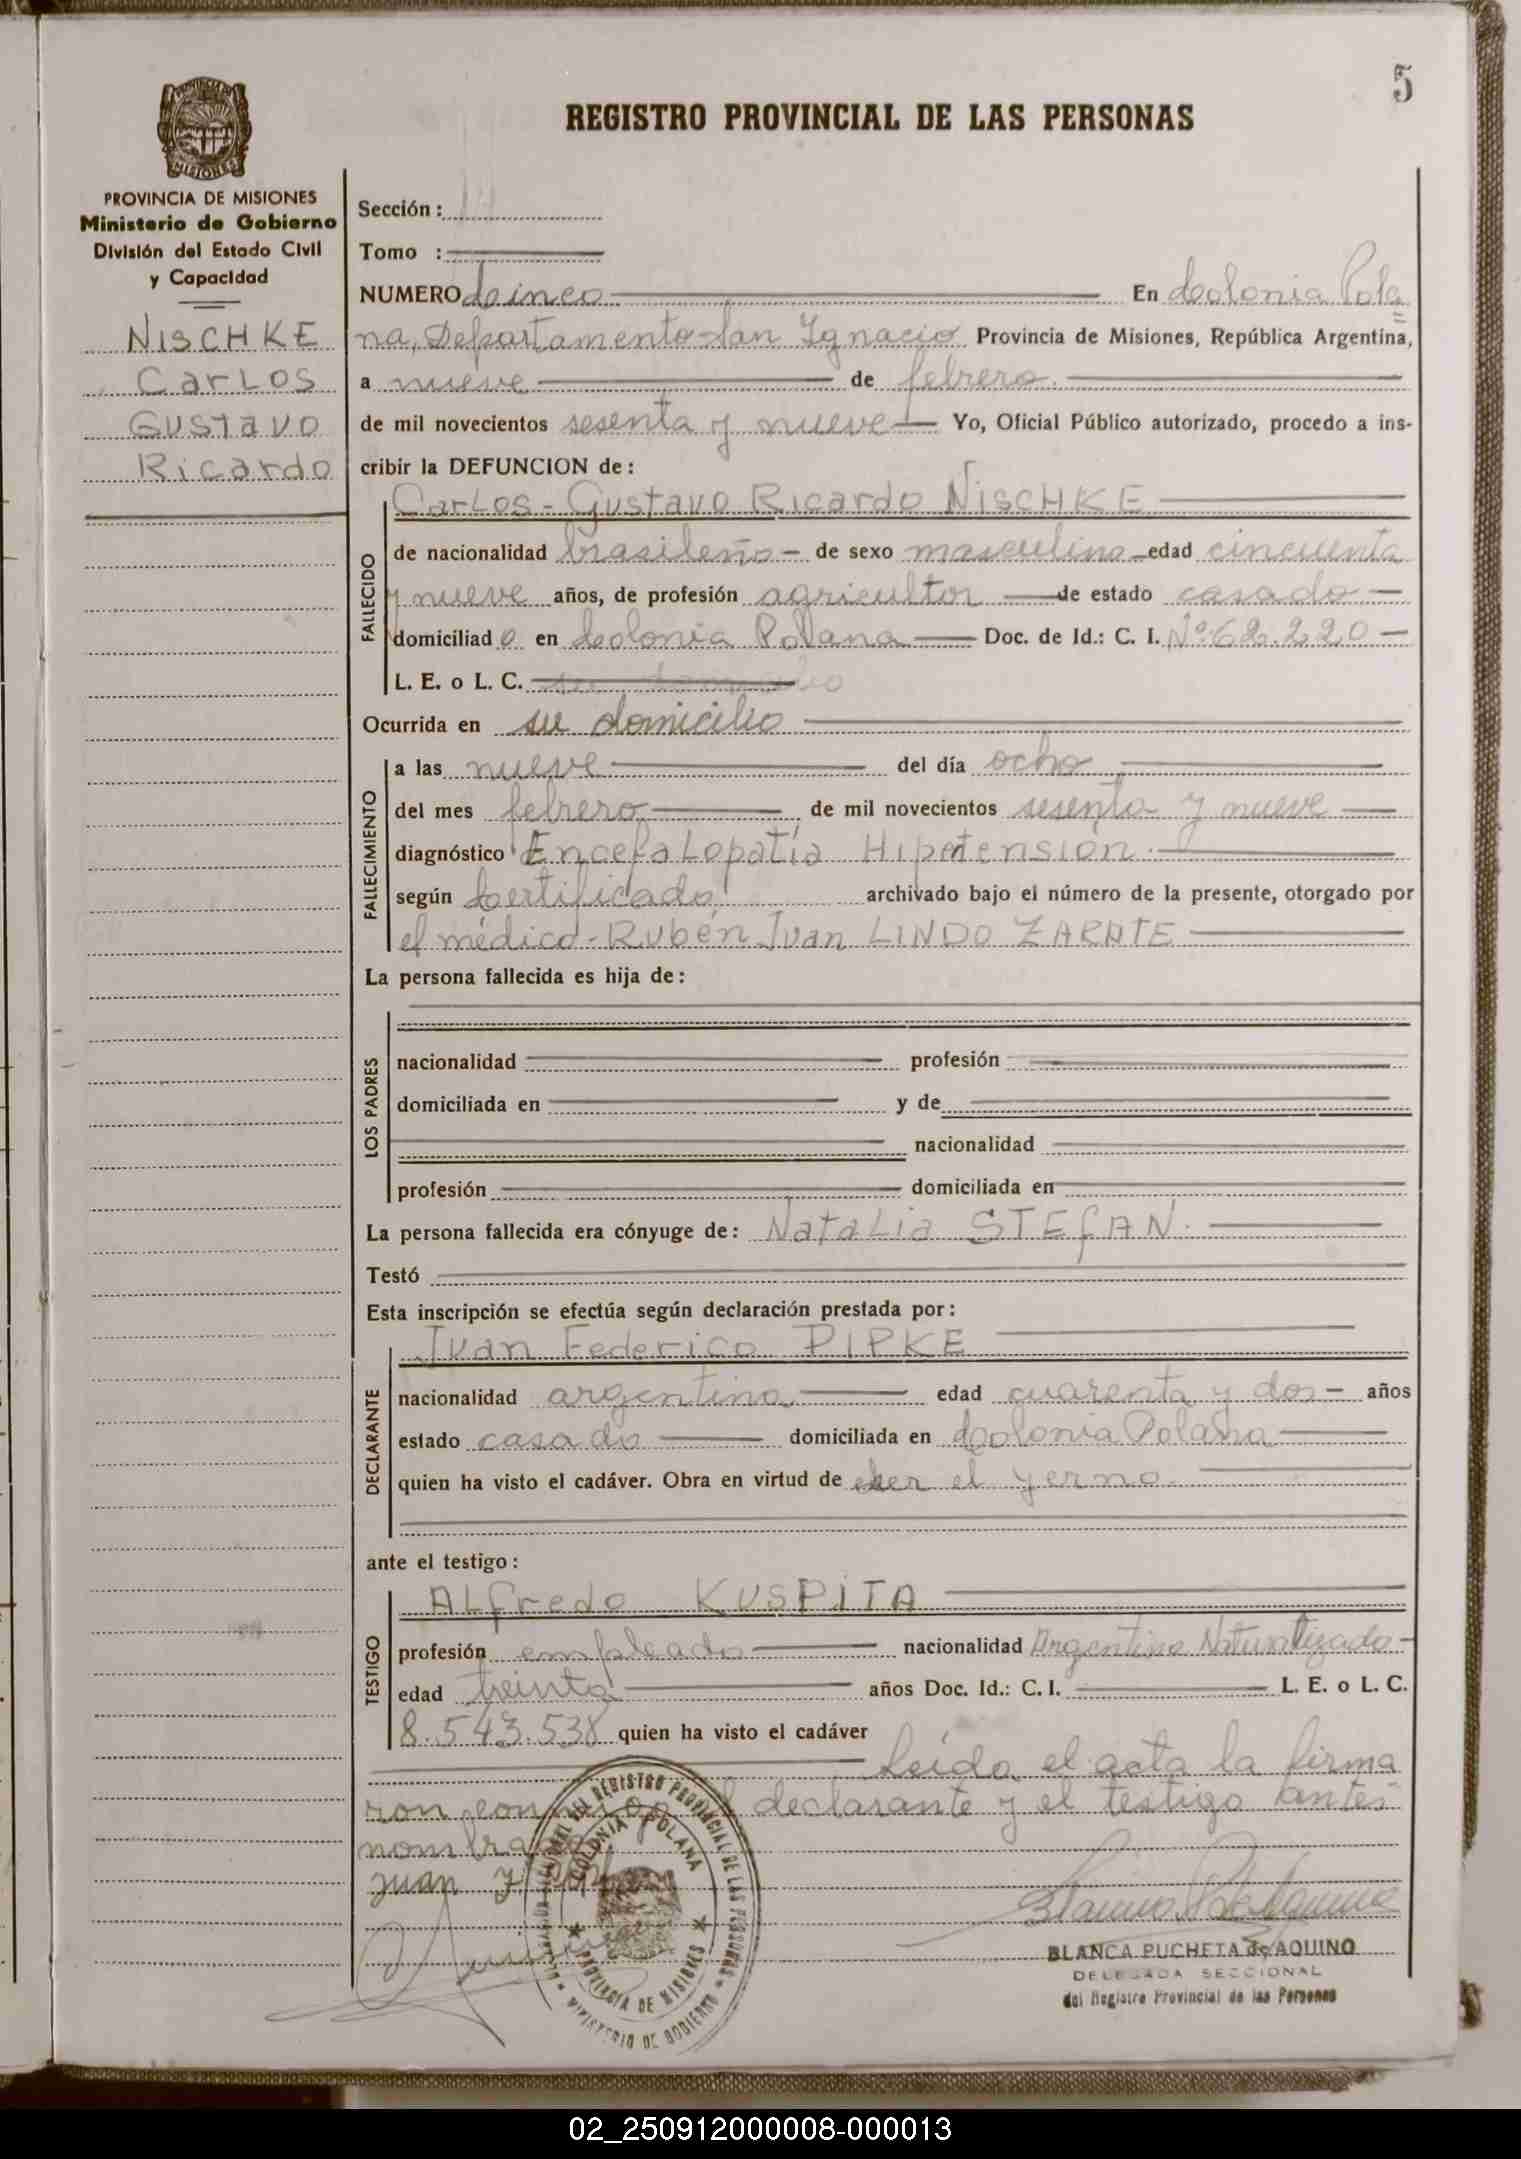 5
REGISTRO PROVINCIAL DE LAS PERSONAS
PROVINCIA DE MISIONES
Ministerio de Gobierno
División del Estado Civil
y Capacidad
NISCHKE
CARLOS
GUSTAVO
Ricardo
Sección :
Tomo :
NUMERO cinco En Colonia Pola
na, Departamento San Ignacio Provincia de Misiones, República Argentina,
a nueve de febrero
de mil novecientos sesenta y nueve Yo, Oficial Público autorizado, procedo a ins-
cribir la DEFUNCION de :
FALLECIDO
Carlos - Gustavo Ricardo NISCHKE
de nacionalidad brasileño - de sexo masculino edad cincuenta
y nueve años, de profesión agricultor de estado casado
domiciliad o en Colonia Polana Doc. de Id.: C. I. Nº 62.220
L. E. o L. C.
Ocurrida en su domicilio
FALLECIMIENTO
a las nueve del día ocho
del mes febrero de mil novecientos sesenta y nueve
diagnóstico Encefalopatía Hipertension
según Certificado archivado bajo el número de la presente, otorgado por
el médico - Rubén Juan LINDO ZARATE
La persona fallecida es hija de :
LOS PADRES
nacionalidad profesión
domiciliada en y de
nacionalidad
profesión domiciliada en
La persona fallecida era cónyuge de : Natalia STEFAN.
Testó
Esta inscripción se efectúa según declaración prestada por :
DECLARANTE
Juan Federico PIPKE
nacionalidad argentina edad cuarenta y dos - años
estado casado domiciliada en Colonia Polana
quien ha visto el cadáver. Obra en virtud de ser el yerno.
ante el testigo :
TESTIGO
Alfredo KUSPITA
profesión empleado nacionalidad Argentino Naturalizado -
edad treinta años Doc. Id.: C. I. L. E. o L. C.
8.543.538 quien ha visto el cadáver
Leída el acta la firma
ron conmigo el declarante y el testigo antes
nombrado
Juan
REGISTRO PROVINCIAL DE LAS PERSONAS
COLONIA POLANA
PROVINCIA DE MISIONES
MINISTERIO DE GOBIERNO
BLANCA PUCHETA de AQUINO
DELEGADA SECCIONAL
del Registro Provincial de las Personas
02_250912000008-000013